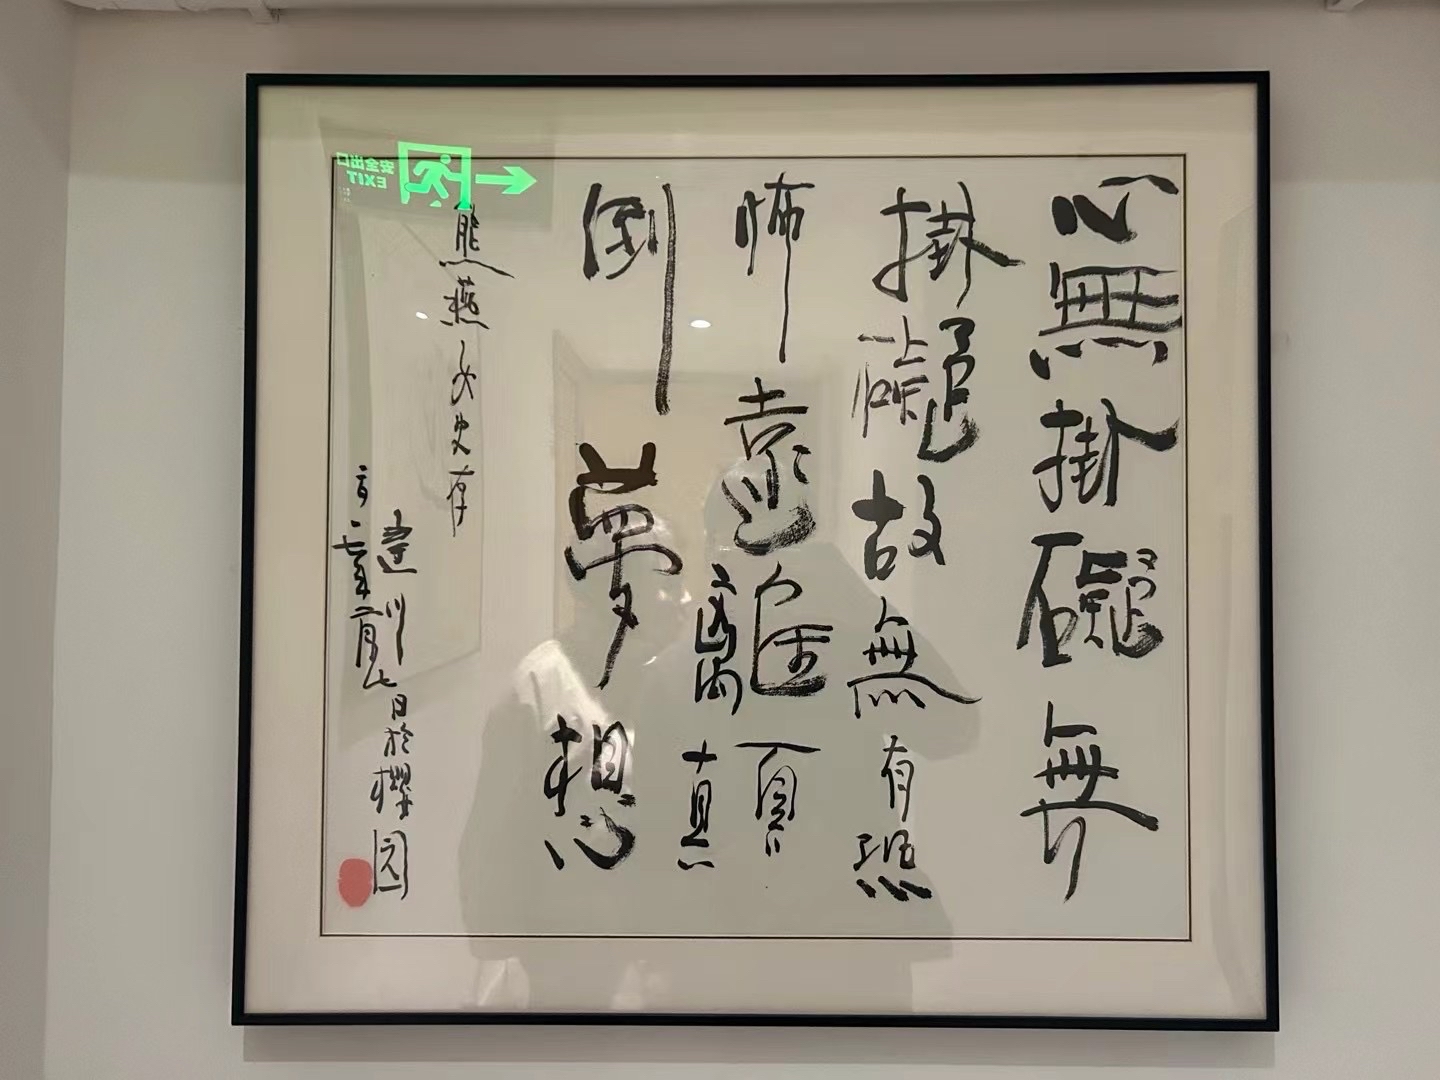 心無掛礙無
掛礙故無有恐
怖遠離顛
倒夢想
熊燕女史存
建川
日於櫻園
安全出口
EXIT